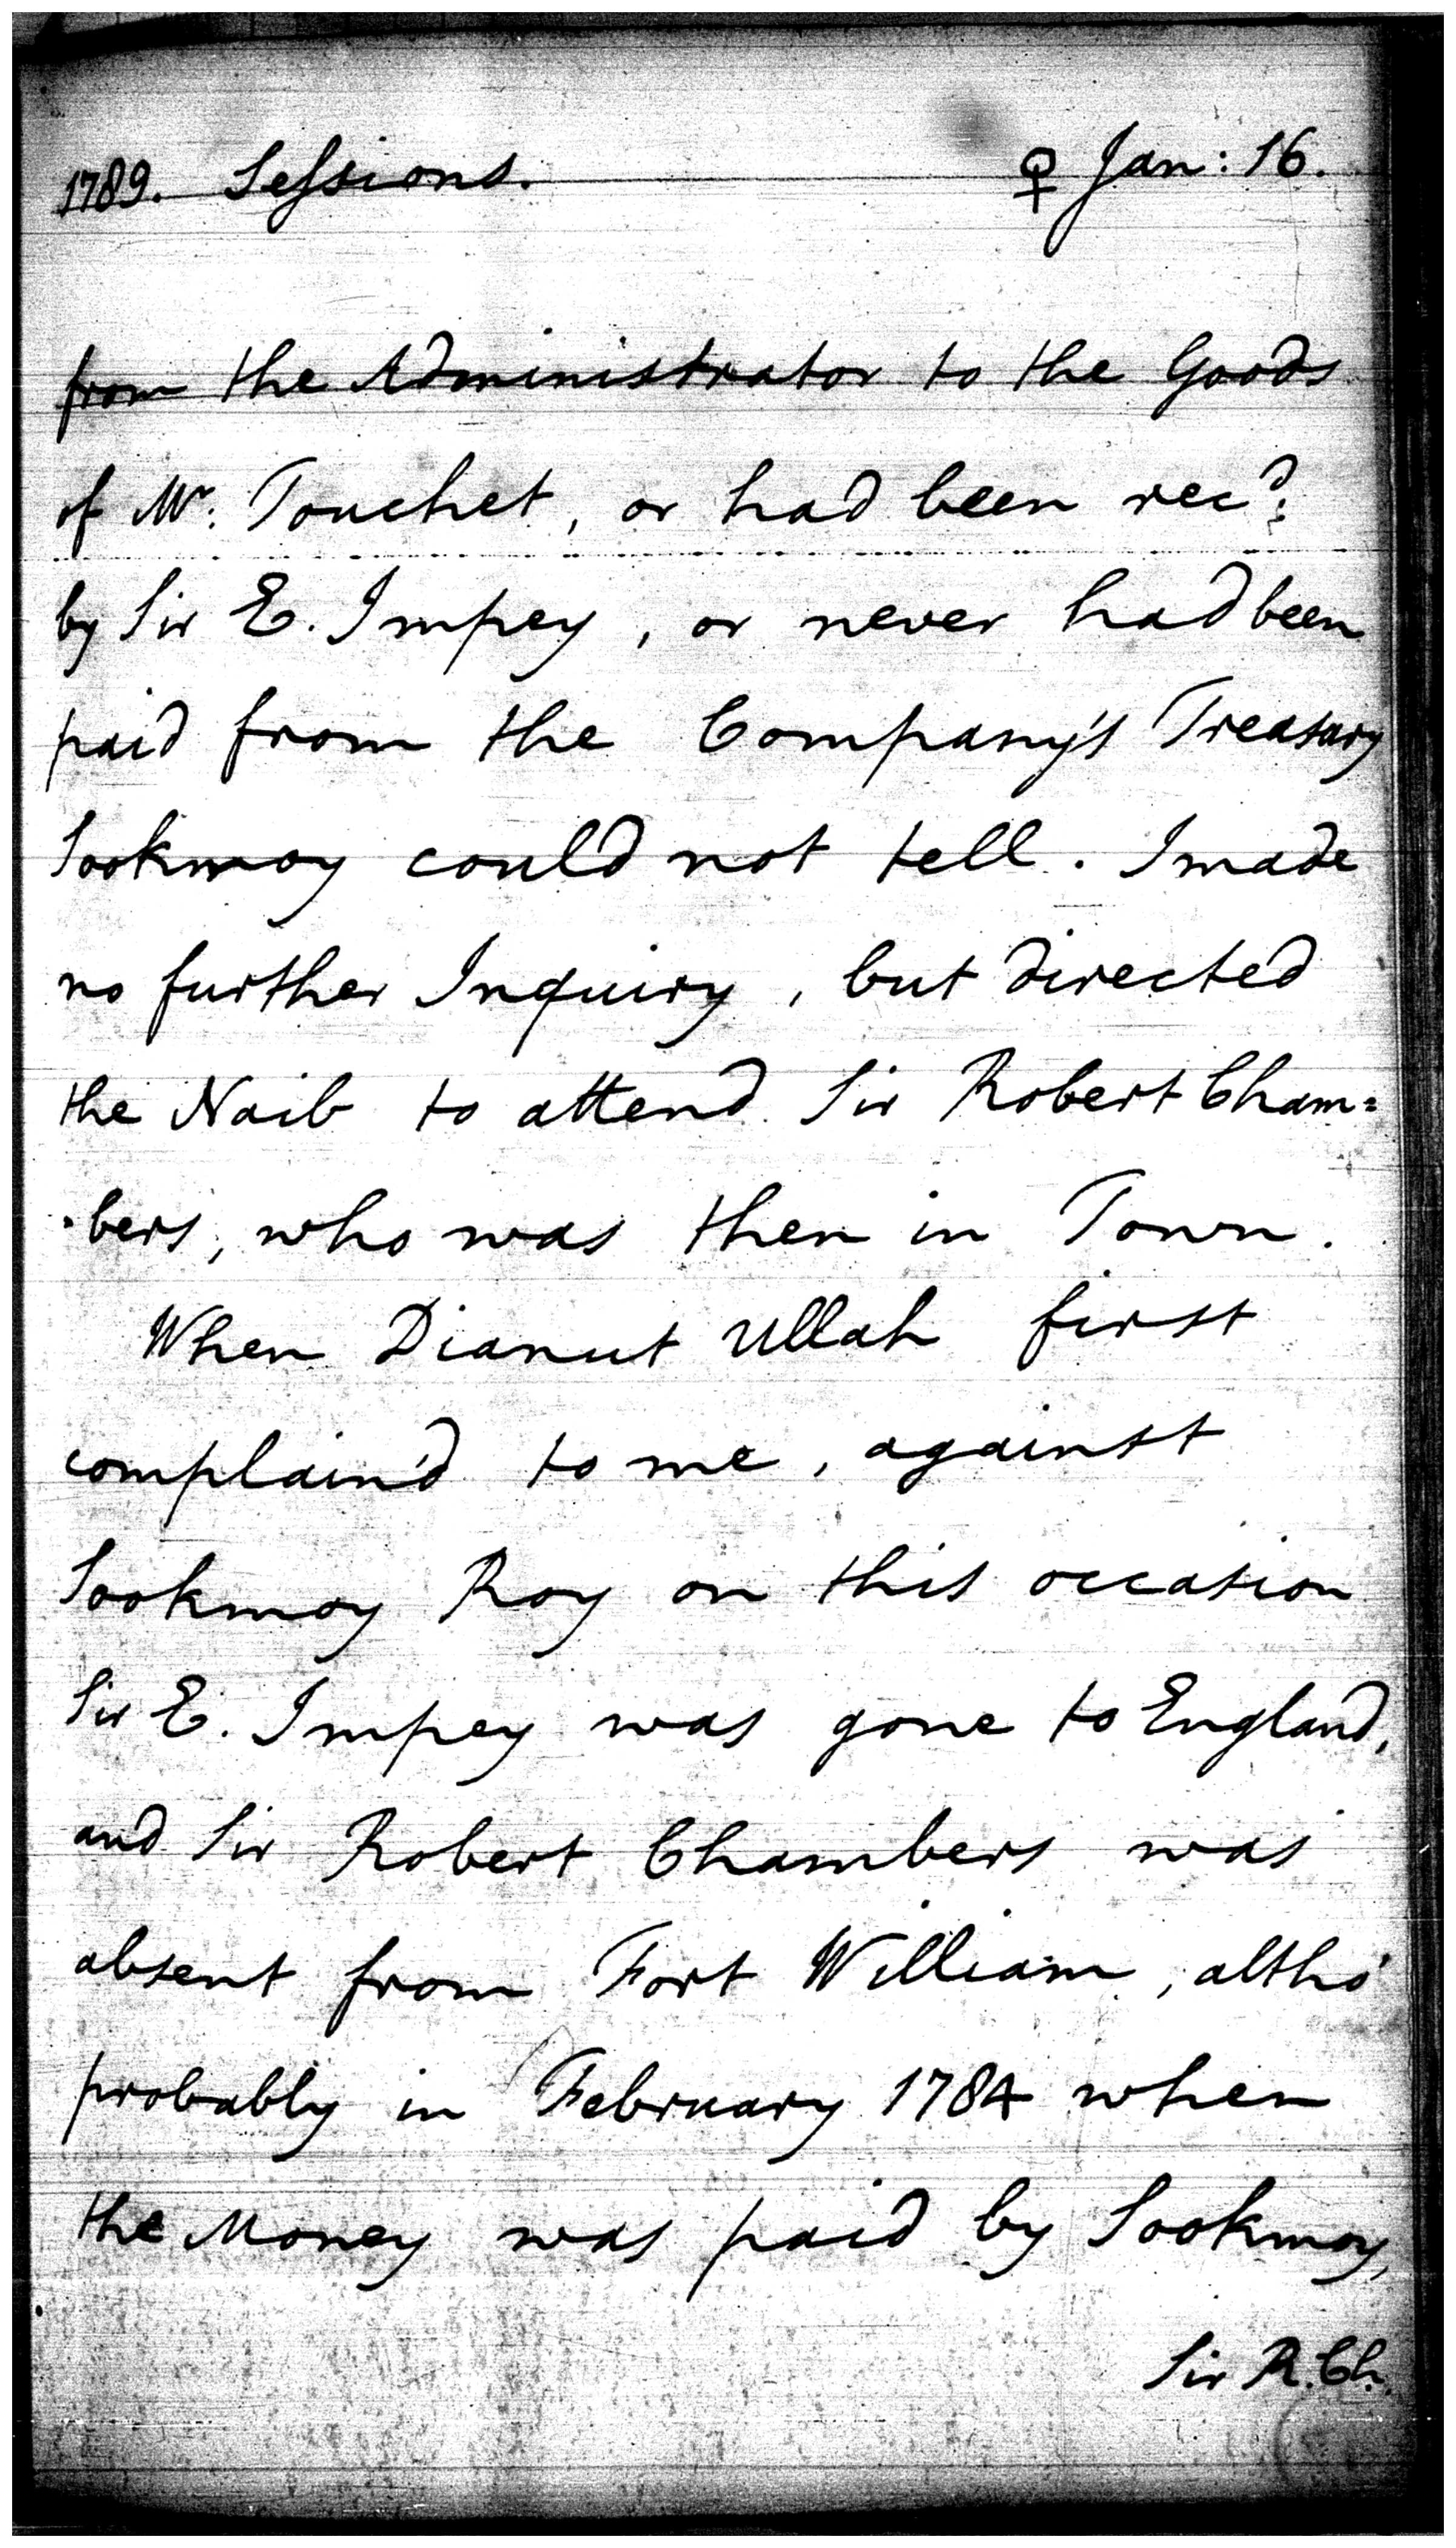 1789. Sessions. ♀ Jan: 16.
from the Administrator to the Goods
of Mr. Touchet, or had been recd:
by Sir E. Impey, or never had been
paid from the Company's Treasury
Sookmoy could not tell. I made
no further Inquiry, but directed
the Naib to attend Sir Robert Cham=
-bers, who was then in Town.
When Dianut Ullah first
complain'd to me, against
Sookmoy Roy on this occasion
Sir E. Impey was gone to England,
and Sir Robert Chambers was
absent from Fort William, altho'
probably in February 1784 when
the Money was paid by Sookmoy,
Sir R. Ch.